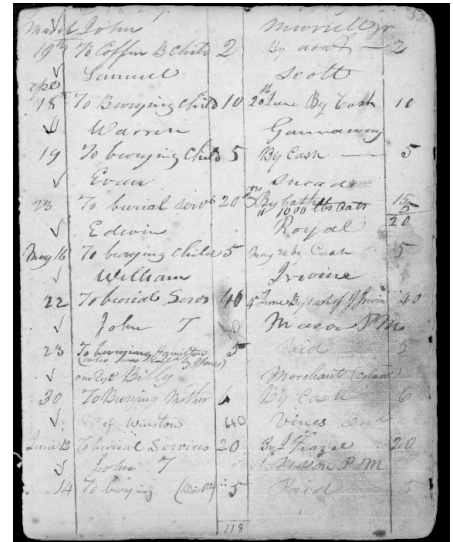 33
March John Murrell Jr
19th To Coffin B Child 2 By acct — 2
Samuel Scott
Apl
18 To Burying child 10 20th June By Cash 10
Warren Gannaway
19 To burying Child 5 By Cash — 5
Evan Snead
23 To burial serv 20 By Cash 15
1000 lbs Oats 5
20
Edwin Royal
May 16 To burying child 5 May 20 by Cash 5
William Irvine
22 To burial Servs 40 4 June By Cash of J Irvine 40
John T Mason PM
23 To burying Hamilton 5 Paid 5
one Eye Billy Merchant
30 To Burying Mother 6 By Cash 6
of Winston 40 Vines
June 12 To burial Services 20 By 20
John T Mason P M
14 To burying 5 Paid 5
118